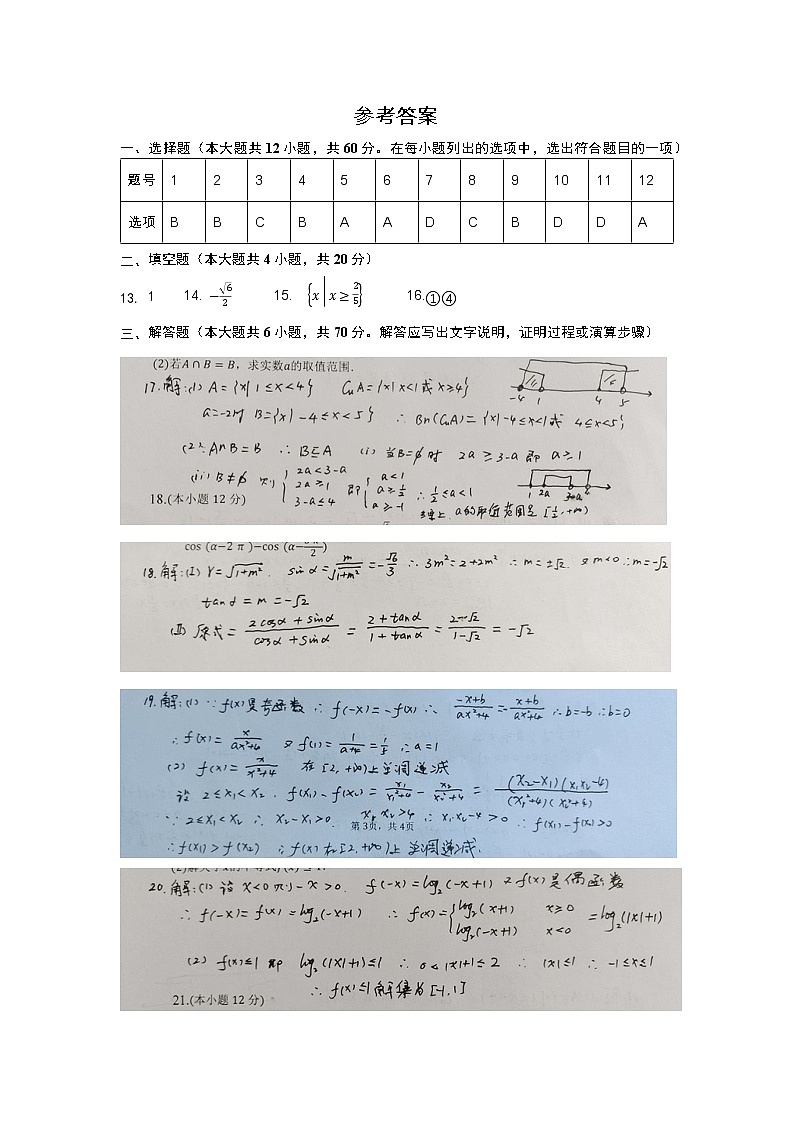 参考答案
一、选择题（本大题共12小题，共60分。在每小题列出的选项中，选出符合题目的一项）
题号 1 2 3 4 5 6 7 8 9 10 11 12
选项 B B C B A A D C B D D A
二、填空题（本大题共4小题，共20分）
13. 1 14. −√6/2 15. {x | x ≥ 2/5} 16.①④
三、解答题（本大题共6小题，共70分。解答应写出文字说明，证明过程或演算步骤）
(2)若A∩B=B，求实数a的取值范围.
17.解:(1) A={x|1≤x<4} CuA={x|x<1或x≥4}
-4 1 4 5
a=-2时 B={x|-4≤x<5} ∴ B∩(CuA)={x|-4≤x<1或 4≤x<5}
(2)∵A∩B=B ∴ B⊆A (i) 当B=∅时 2a≥3-a 即 a≥1
(ii) B≠∅ 则 { 2a<3-a 2a≥1 3-a≤4 即 { a<1 a≥1/2 a≥-1 ∴ 1/2≤a<1
1 2a 3-a 4
综上 a的取值范围是 [1/2,+∞)
18.(本小题12分)
cos (α−2π)−cos (α−
18.解:(I) r=√(1+m²). sinα=m/√(1+m²)=-√6/3 ∴ 3m²=2+2m² ∴ m=±√2. 又 m<0 ∴m=-√2
tanα=m=-√2
(II) 原式=(2cosα+sinα)/(cosα+sinα)=(2+tanα)/(1+tanα)=(2-√2)/(1-√2)=-√2
19.解:(1) ∵ f(x)是奇函数 ∴ f(-x)=-f(x) ∴ (-x+b)/(ax²+4)=-(x+b)/(ax²+4) ∴b=-b ∴b=0
∴ f(x)=x/(ax²+4) 又 f(1)=1/(a+4)=1/5 ∴ a=1
(2) f(x)=x/(x²+4) 在[2,+∞)上单调递减
设 2≤x₁<x₂. f(x₁)-f(x₂)=x₁/(x₁²+4)-x₂/(x₂²+4)=(x₂-x₁)(x₁x₂-4)/(x₁²+4)(x₂²+4)
∵ 2≤x₁<x₂ ∴ x₂-x₁>0. x₁x₂>4 ∴ x₁x₂-4>0 ∴ f(x₁)-f(x₂)>0
第3页，共4页
∴f(x₁)>f(x₂) ∴f(x)在[2,+∞)上单调递减.
20.解:(1) 设 x<0 则 -x>0. f(-x)=log₂(-x+1) 又f(x)是偶函数
∴ f(-x)=f(x)=log₂(-x+1) ∴ f(x)={ log₂(x+1) x≥0 log₂(-x+1) x<0 =log₂(|x|+1)
(2) f(x)≤1 即 log₂(|x|+1)≤1 ∴ 0<|x|+1≤2 ∴ |x|≤1 ∴ -1≤x≤1
∴ f(x)≤1解集为[-1,1]
21.(本小题12分)